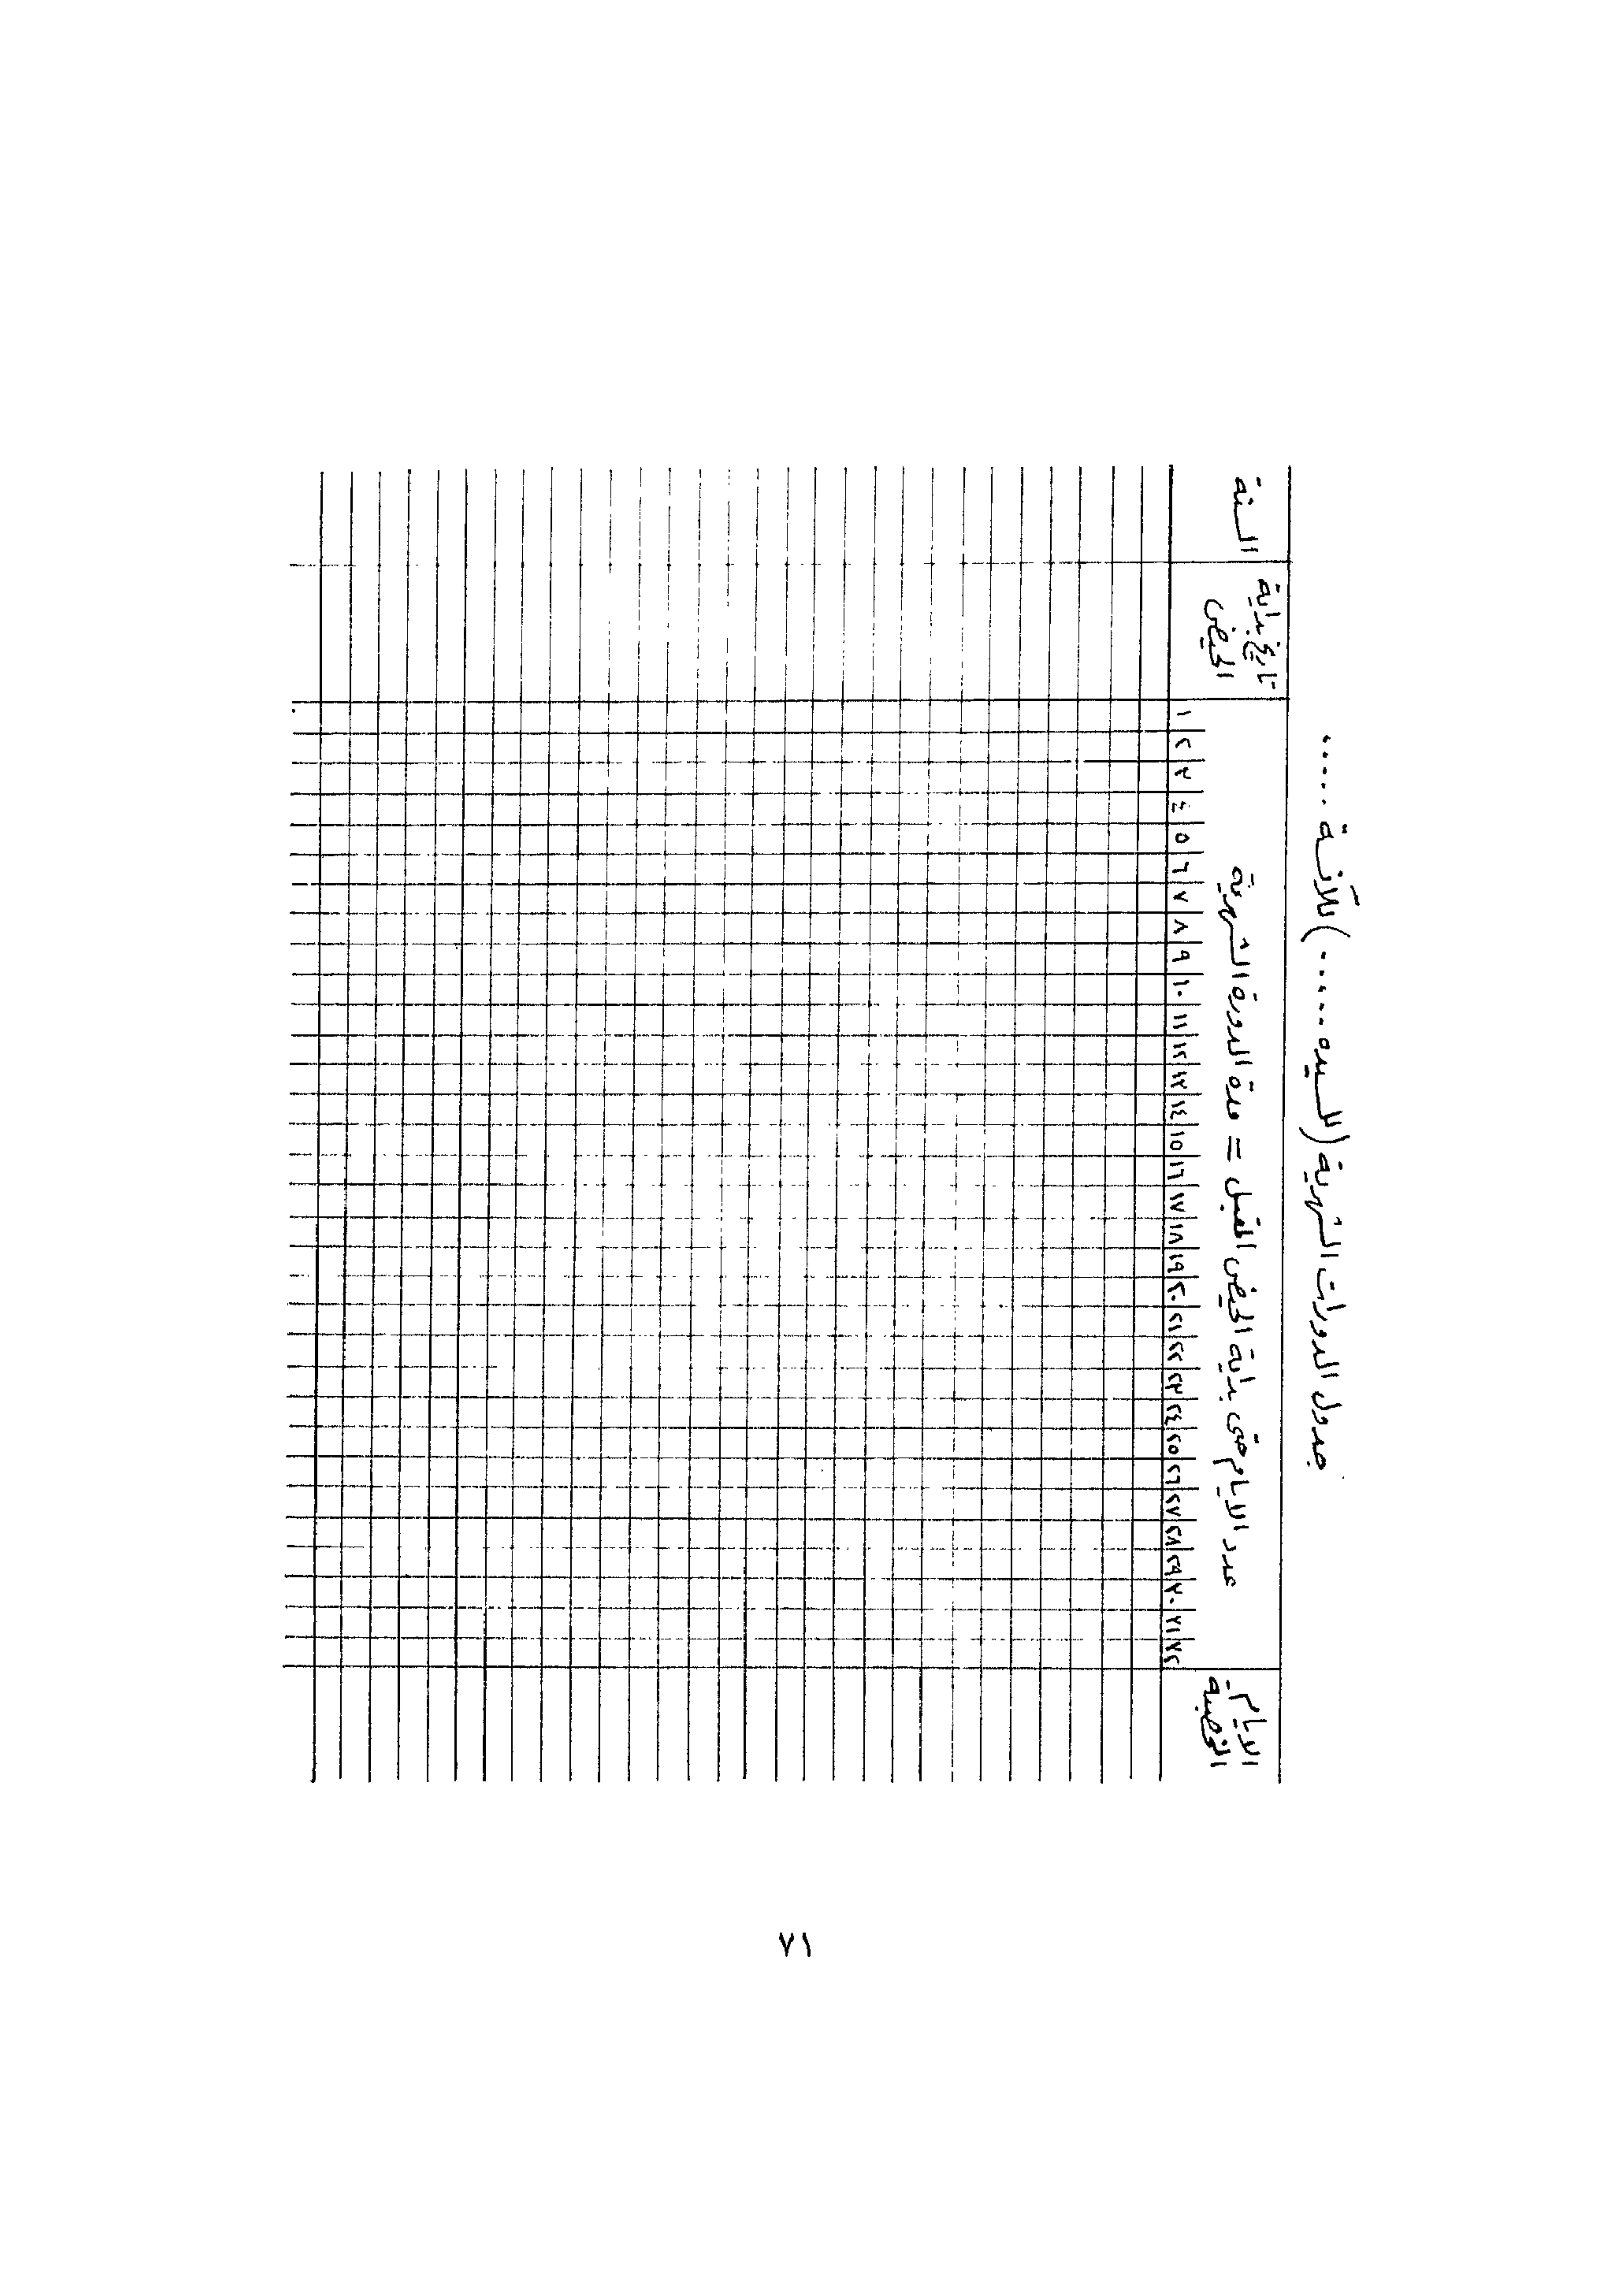 جدول الدورات الشهرية (للسيده .....) للآنسة .....
السنة
تاريخ بداية
الحيض
عدد الايام حتى بداية الحيض المقبل = مدة الدورة الشهرية
الايام
الخصبة
١ ٢ ٣ ٤ ٥ ٦ ٧ ٨ ٩ ١٠ ١١ ١٢ ١٣ ١٤ ١٥ ١٦ ١٧ ١٨ ١٩ ٢٠ ٢١ ٢٢ ٢٣ ٢٤ ٢٥ ٢٦ ٢٧ ٢٨ ٢٩ ٣٠ ٣١ ٣٢
٧١